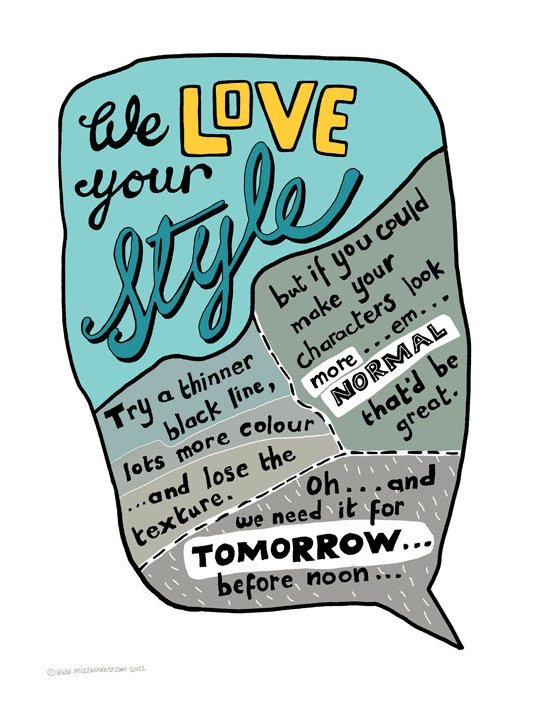 We LOVE
your
Style
but if you could
make your
characters look
more ...em...
NORMAL
that'd be
great.
Try a thinner
black line,
lots more colour
...and lose the
texture.
Oh...and
we need it for
TOMORROW...
before noon...
©www.mizzwinkens.com 2012